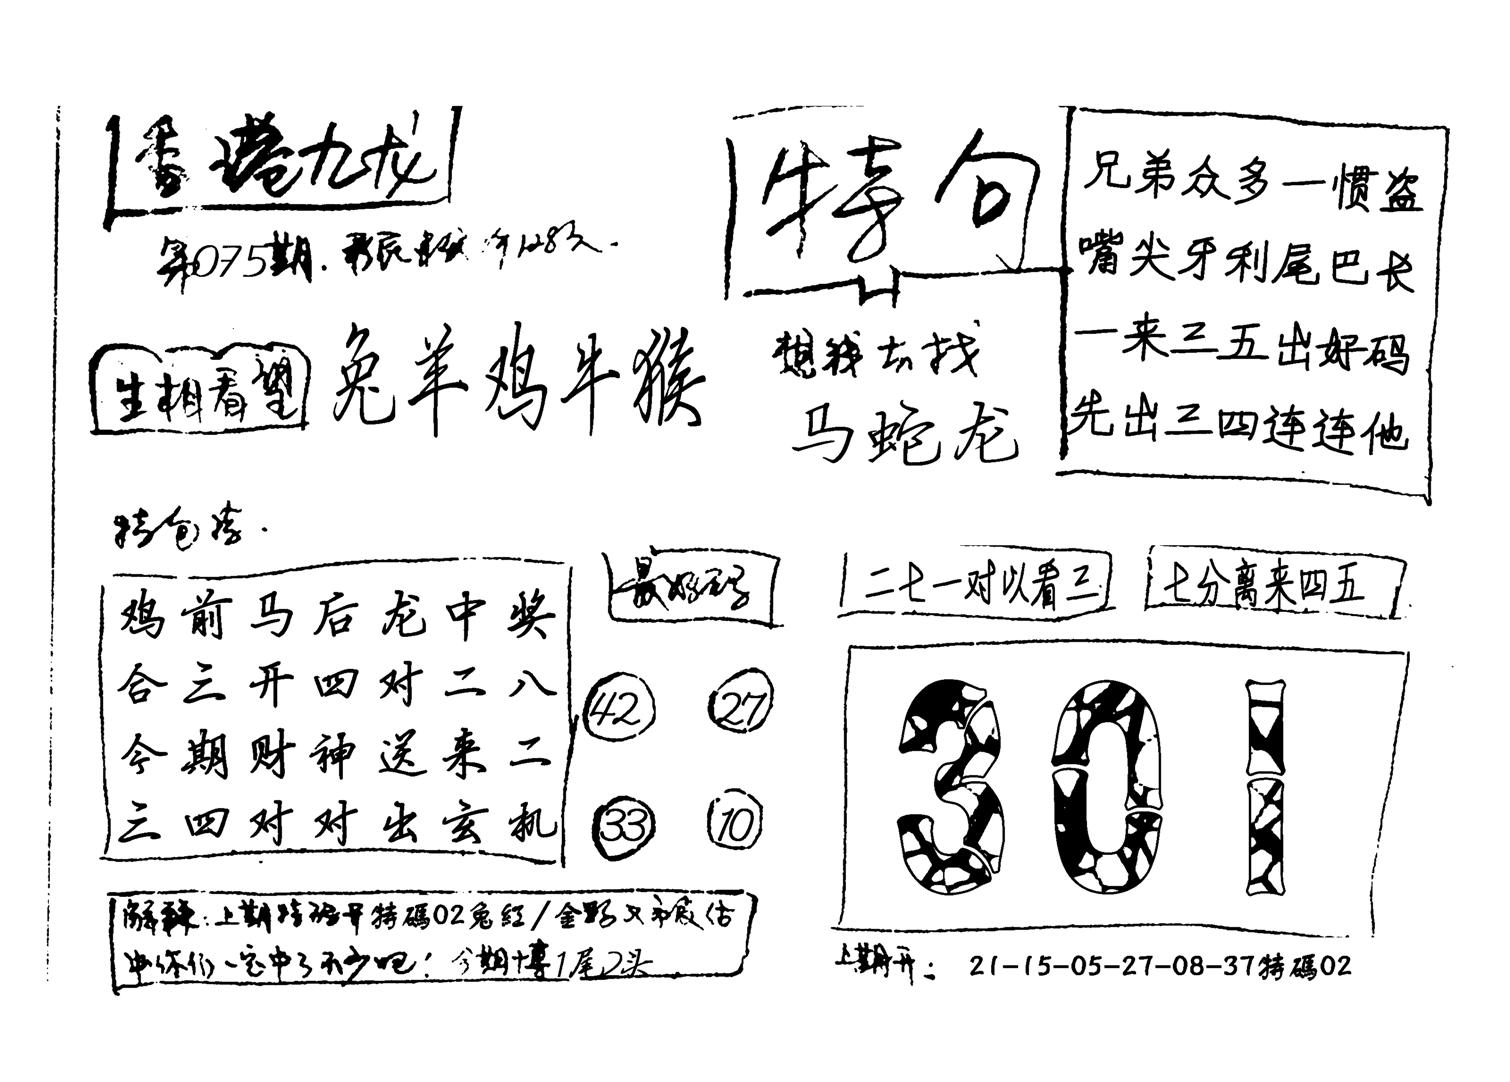 香港九龙
第075期.
特句
兄弟众多一惯盗
嘴尖牙利尾巴长
一来三五出好码
先出三四连连他
生相看望
兔羊鸡牛猴
想钱去找
马蛇龙
特包信.
鸡前马后龙中奖
合三开四对二八
今期财神送来二
三四对对出玄机
最好码
42 27
33 10
二七一对以看三
七分离来四五
301
解释:上期特码开特碼02兔红/金野
你们一定中了不少吧!今期博1尾2头
上期开: 21-15-05-27-08-37特碼02